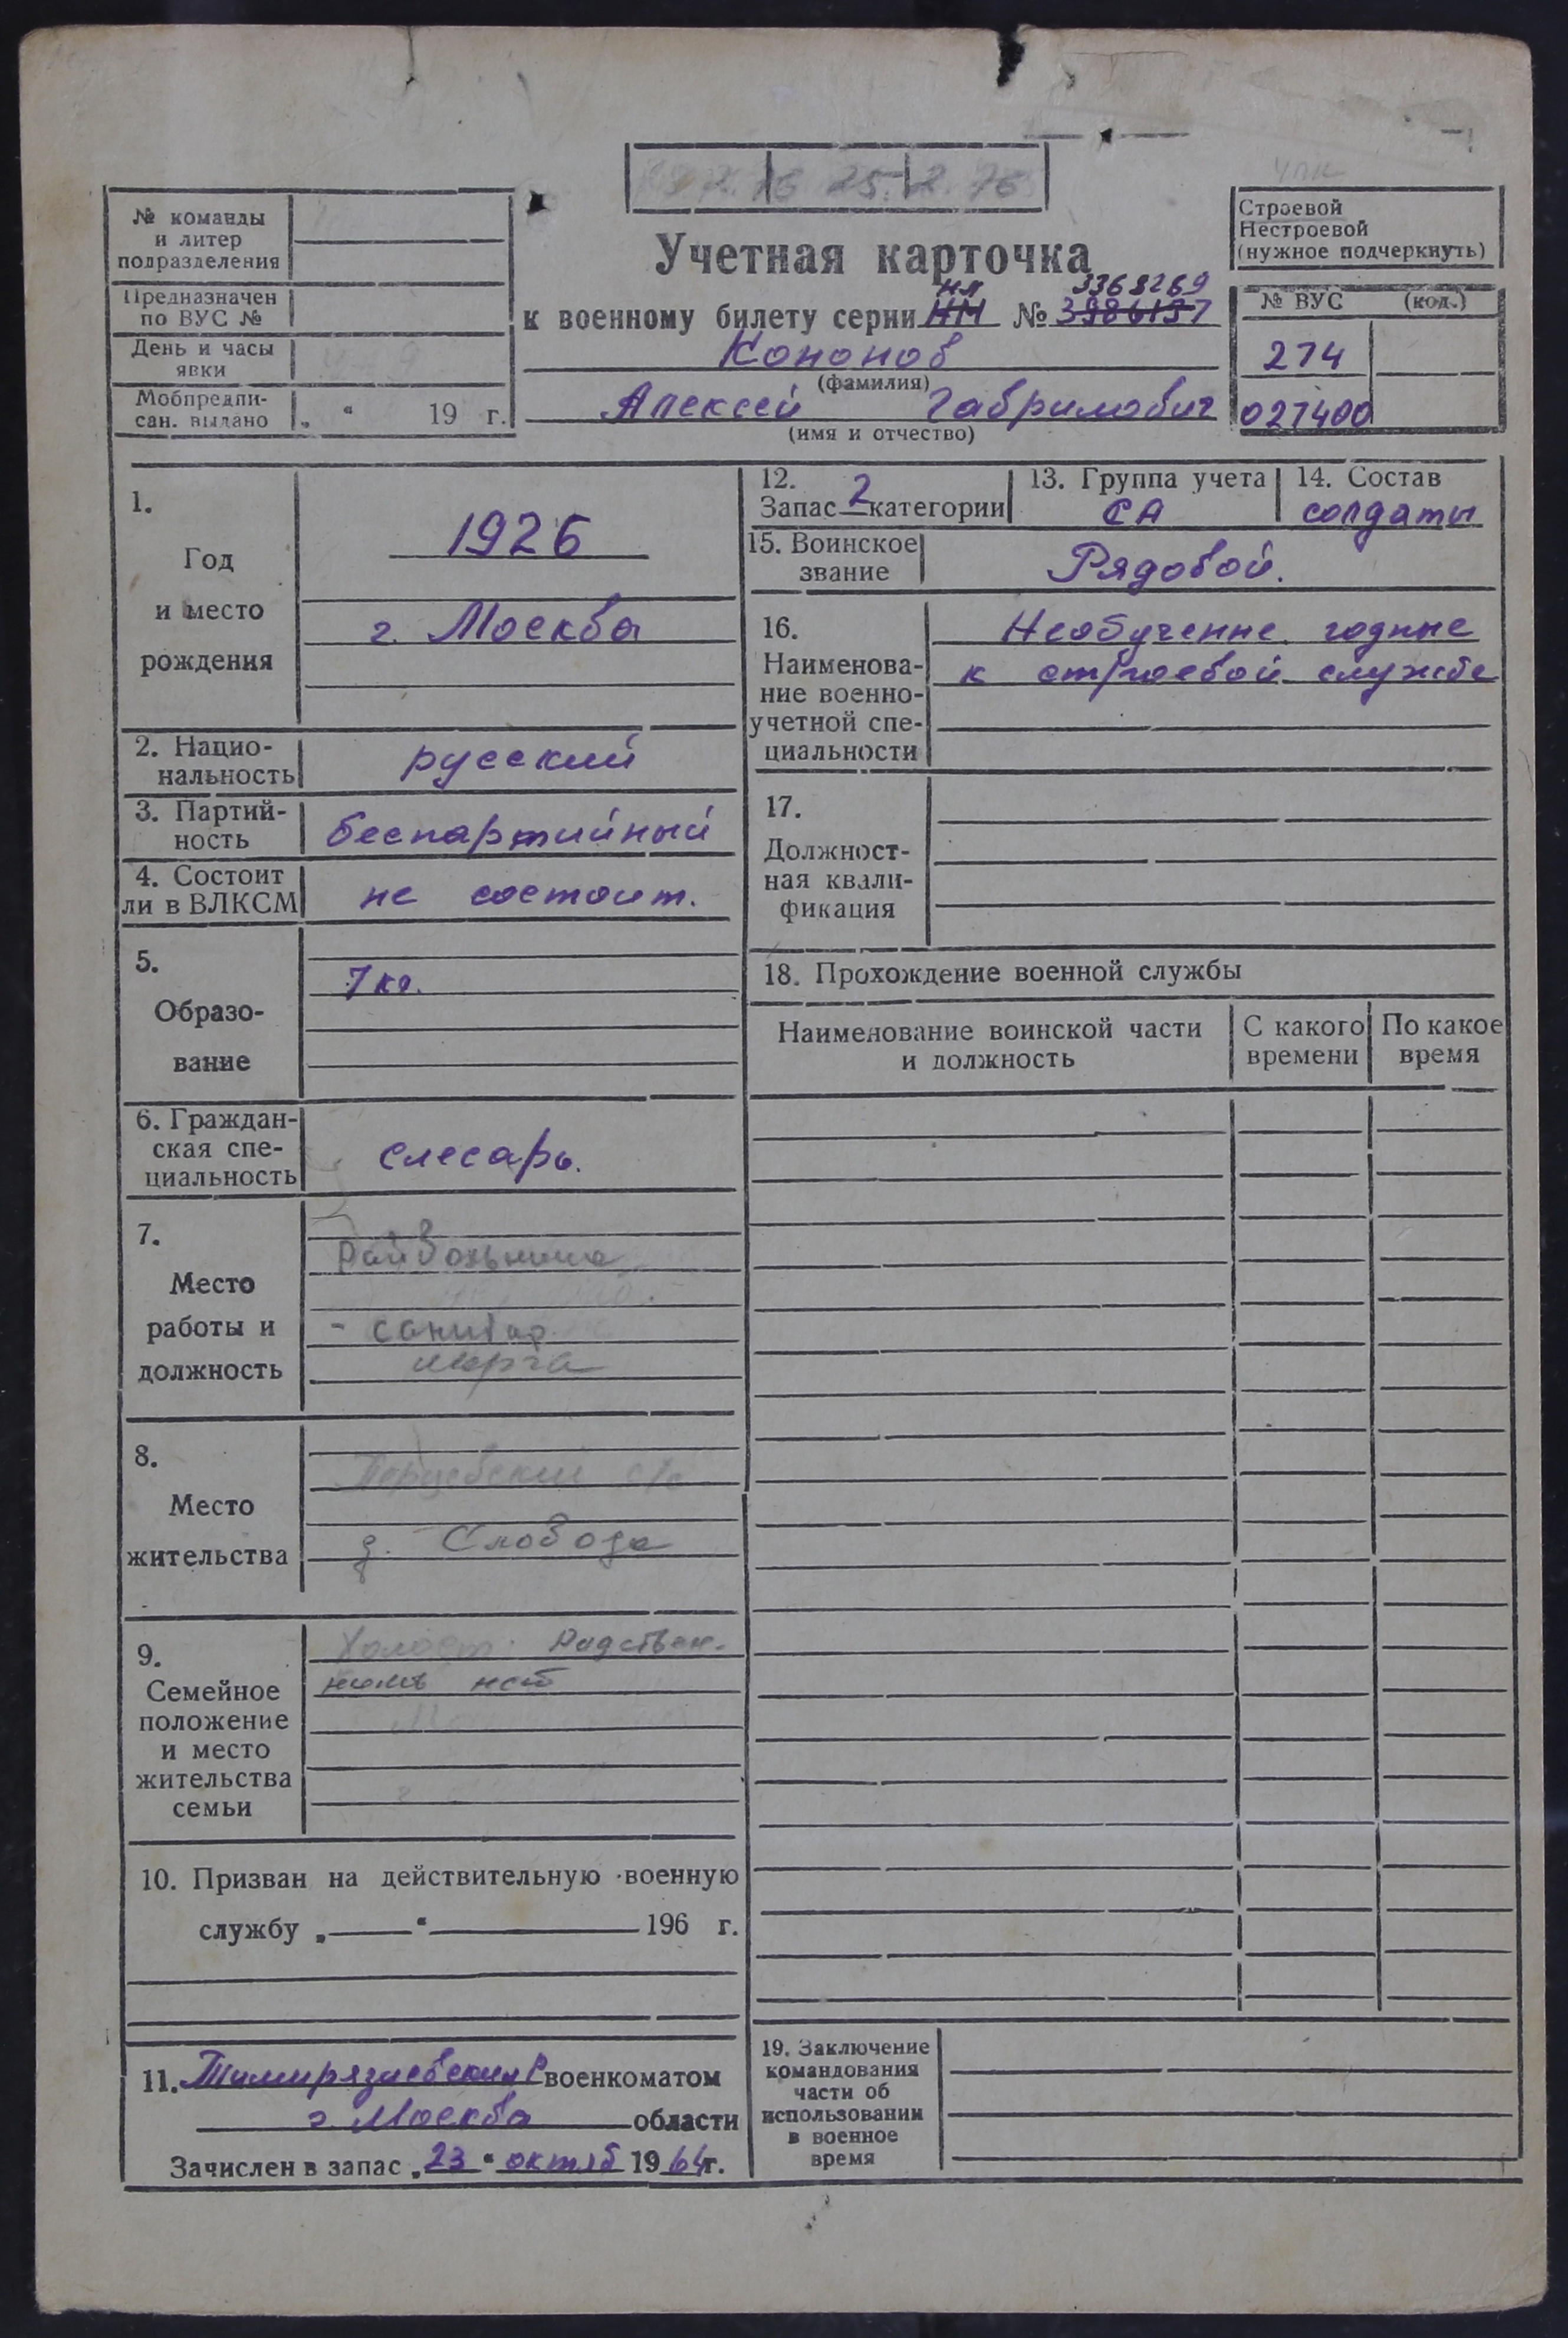 25. 2. 76
№ команды
и литер
подразделения
Предназначен
по ВУС №
День и часы
явки
Мобпредпи-
сан. выдано „ “ 19 г.
Учетная карточка
НЛ 3368269
к военному билету серии НМ № 3986197
Кононов
(фамилия)
Алексей Гаврилович
(имя и отчество)
Строевой
Нестроевой
(нужное подчеркнуть)
№ ВУС (код.)
274
027400
1.
Год
и место
рождения
1926
г. Москва
2. Нацио-
нальность
русский
3. Партий-
ность
беспартийный
4. Состоит
ли в ВЛКСМ
не состоит.
5.
Образо-
вание
7 кл.
6. Граждан-
ская спе-
циальность
слесарь.
7.
Место
работы и
должность
Райбольница
- санитар
морга
8.
Место
жительства
с/с
д. Слобода
9.
Семейное
положение
и место
жительства
семьи
Холост. Родствен-
ников нет
10. Призван на действительную военную
службу „ “ 196 г.
11. Тимирязиевским Р военкоматом
г. Москва области
Зачислен в запас „23“ октяб 1964г.
12.
Запас 2 категории
13. Группа учета
СА
14. Состав
солдаты
15. Воинское
звание
Рядовой.
16.
Наименова-
ние военно-
учетной спе-
циальности
Необученные годные
к строевой службе
17.
Должност-
ная квали-
фикация
18. Прохождение военной службы
Наименование воинской части
и должность
С какого
времени
По какое
время
19. Заключение
командования
части об
использовании
в военное
время